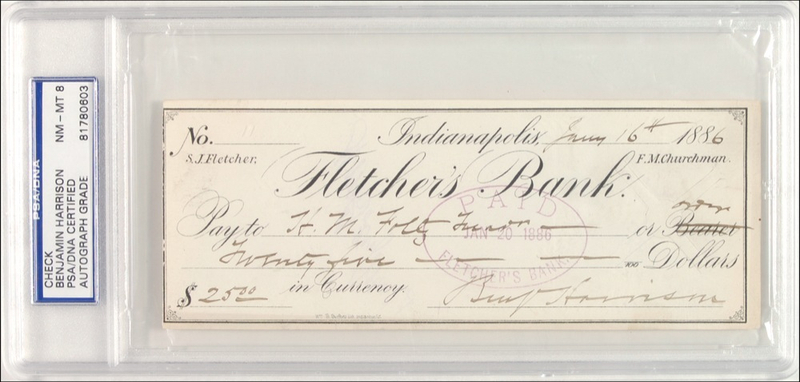 PSA/DNA
CHECK
BENJAMIN HARRISON
PSA/DNA CERTIFIED
AUTOGRAPH GRADE
NM-MT 8
81780603
No.
Indianapolis, Jany 16th 1886
S.J.Fletcher.
F.M.Churchman.
Fletcher's Bank.
PAID
JAN 20 1886
FLETCHER'S BANK.
order
Pay to H. M. Foltz or Bearer
Twenty five 100 Dollars
$ 25.00 in Currency. Benj Harrison